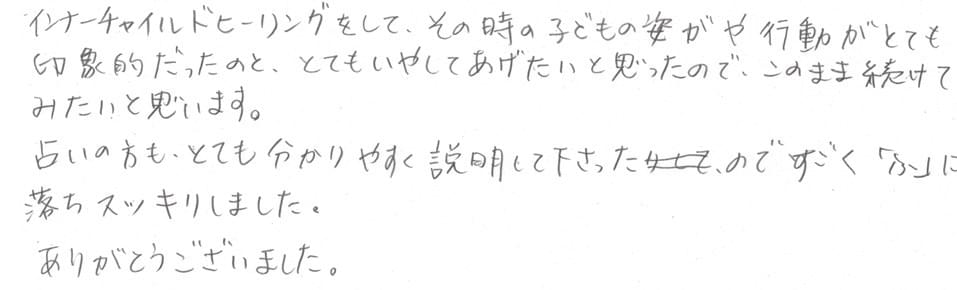 インナーチャイルドヒーリングをして、その時の子どもの姿がや行動がとても
印象的だったのと、とてもいやしてあげたいと思ったので、このまま続けて
みたいと思います。
占いの方も、とても分かりやすく説明して下さった、のですごく「ふ」に
落ちスッキリしました。
ありがとうございました。